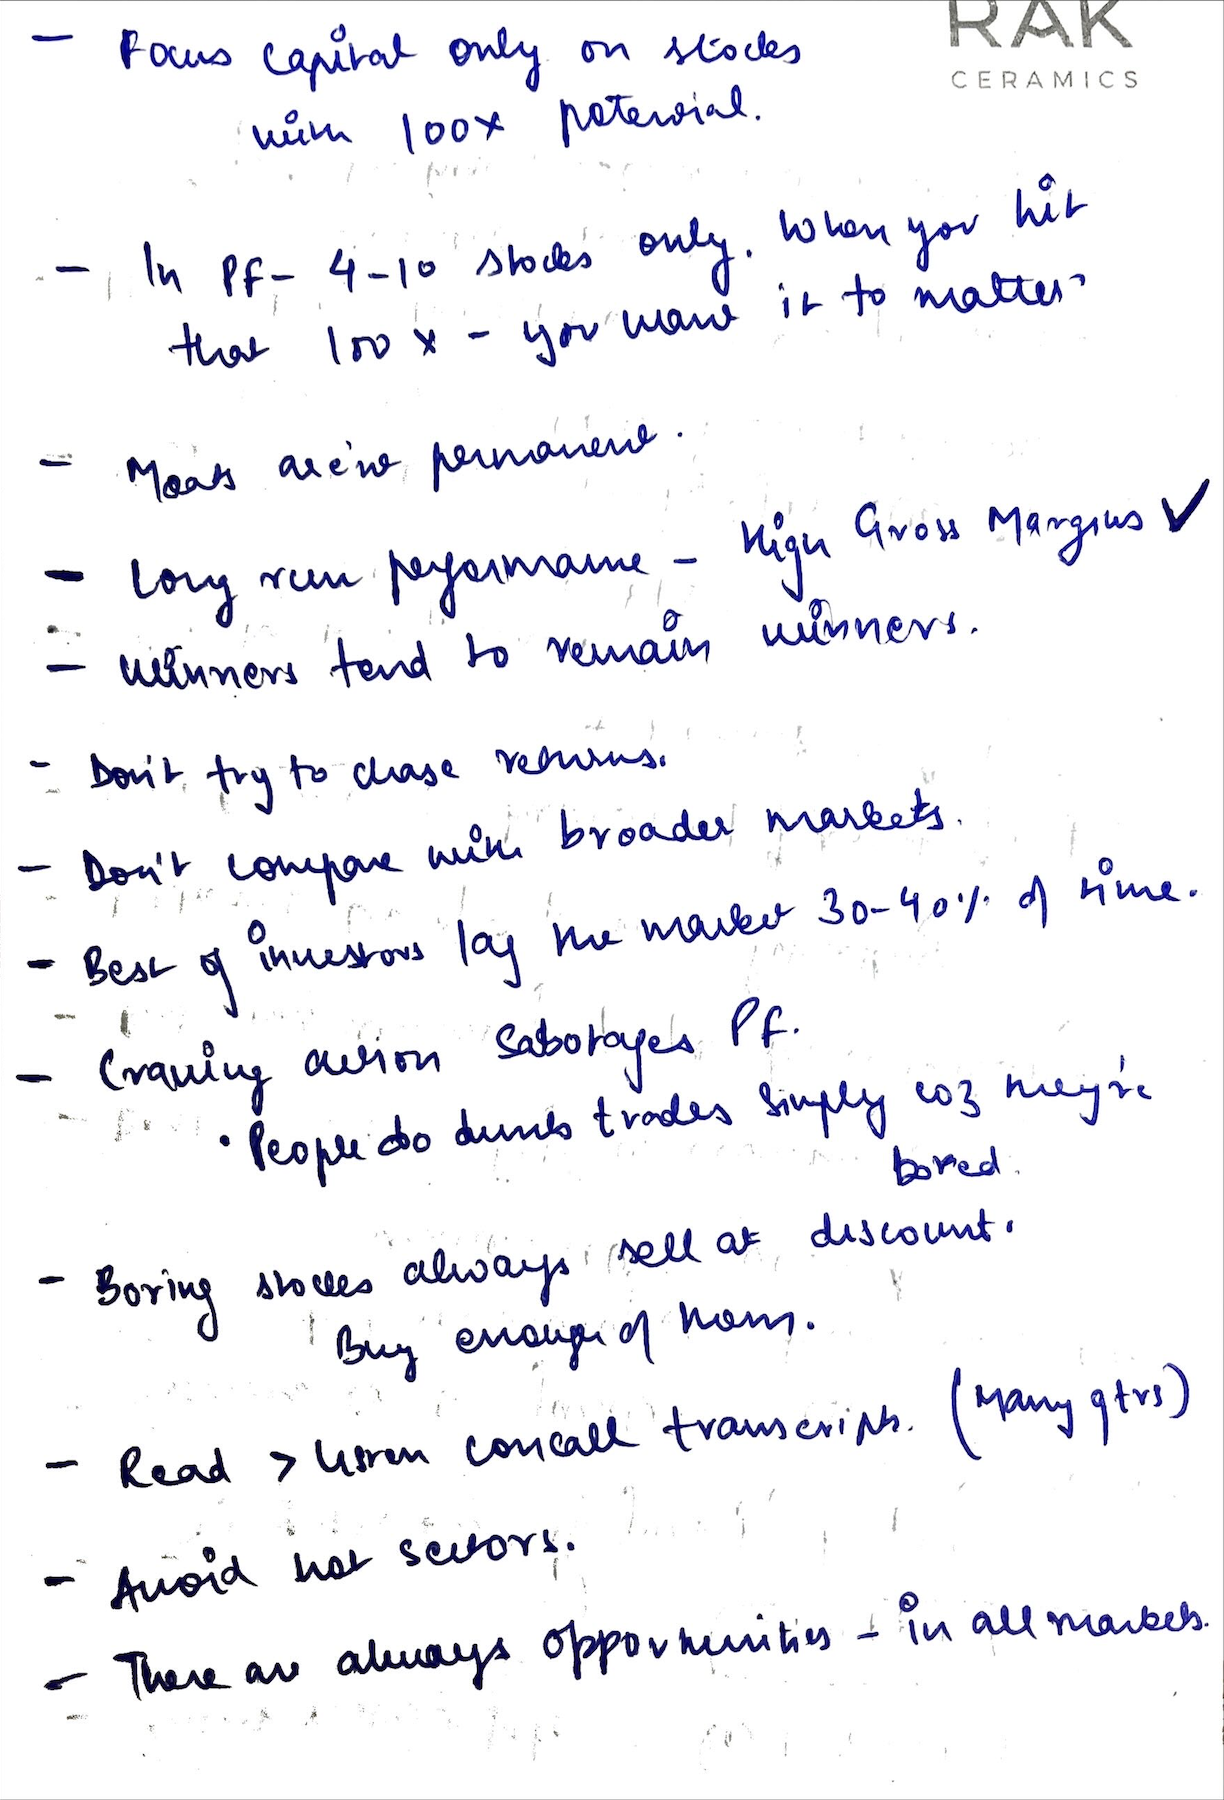 RAK
CERAMICS
- Focus capital only on stocks
with 100x potential.
- In Pf - 4-10 stocks only. When you hit
that 100x - you want it to matter.
- Moats aren't permanent.
- Long run performance - High Gross Margins ✓
- Winners tend to remain winners.
- Don't try to chase returns.
- Don't compare with broader markets.
- Best of investors lag the market 30-40% of time.
- Craving action sabotages Pf.
• People do dumb trades simply coz they're
bored.
- Boring stocks always sell at discount.
Buy enough of them.
- Read > listen concall transcripts. (Many qtrs)
- Avoid hot sectors.
- There are always opportunities - in all markets.